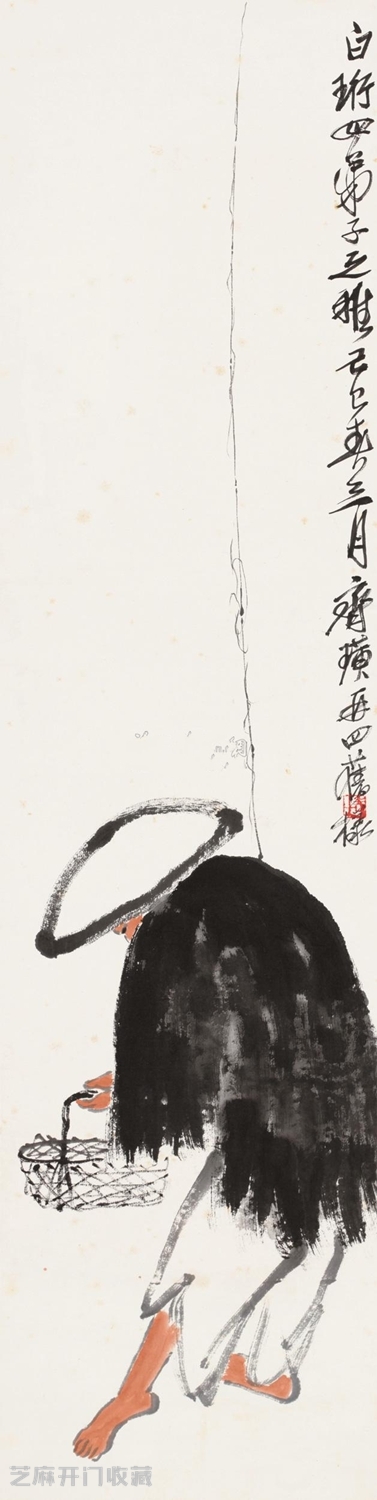 白珩四弟子之雅己巳春三月齊璜再四舊樣
芝麻开门收藏